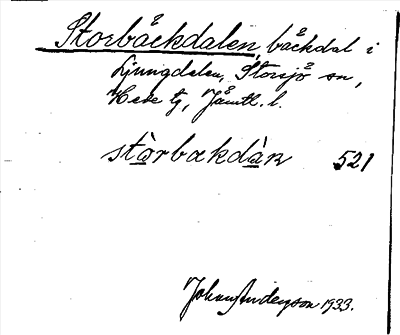 Storbäckdalen, bäckdal i
Ljungdalen, Storsjö sn,
Hede tg, Jämtl. l.
stòrbakdàn 521
Johan Anderson 1933.